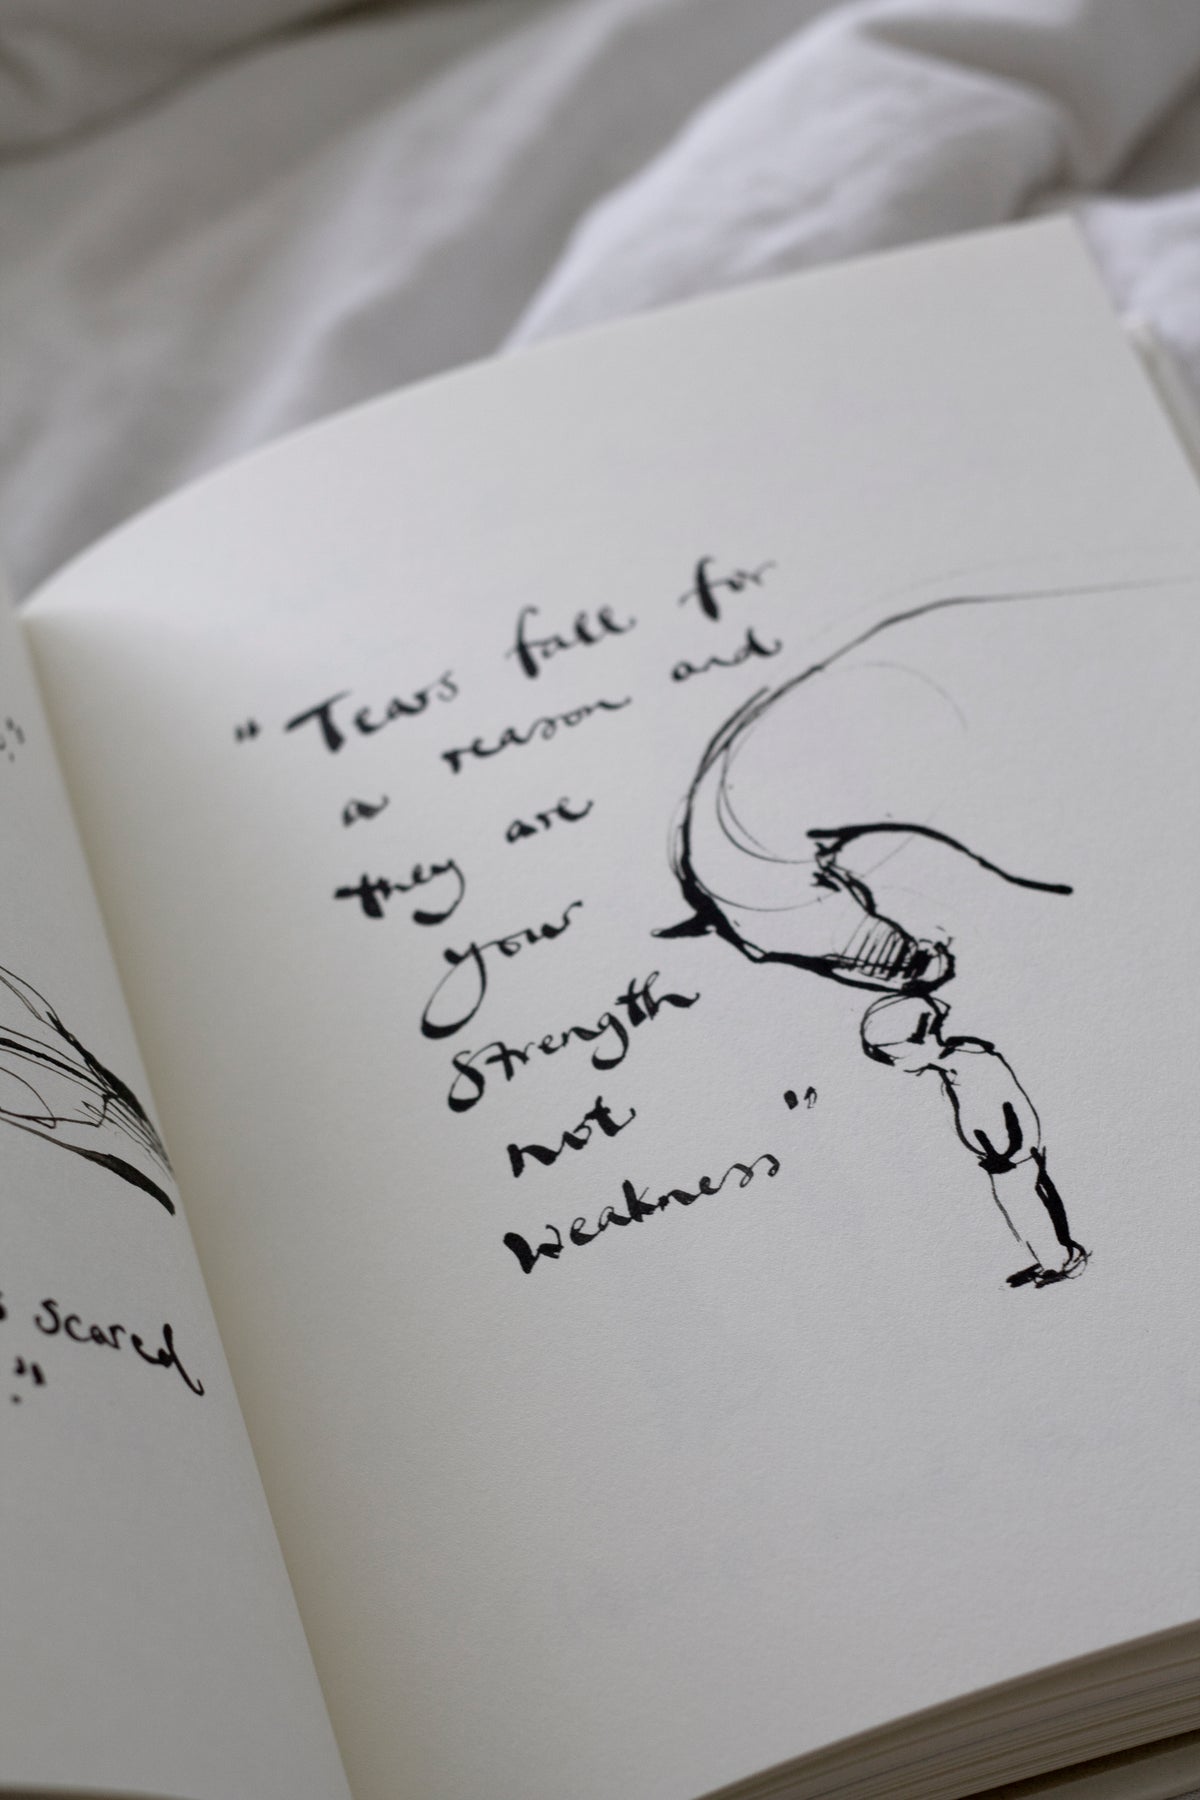 scared
"
"Tears fall for
a reason and
they are
your
strength
not
weakness"